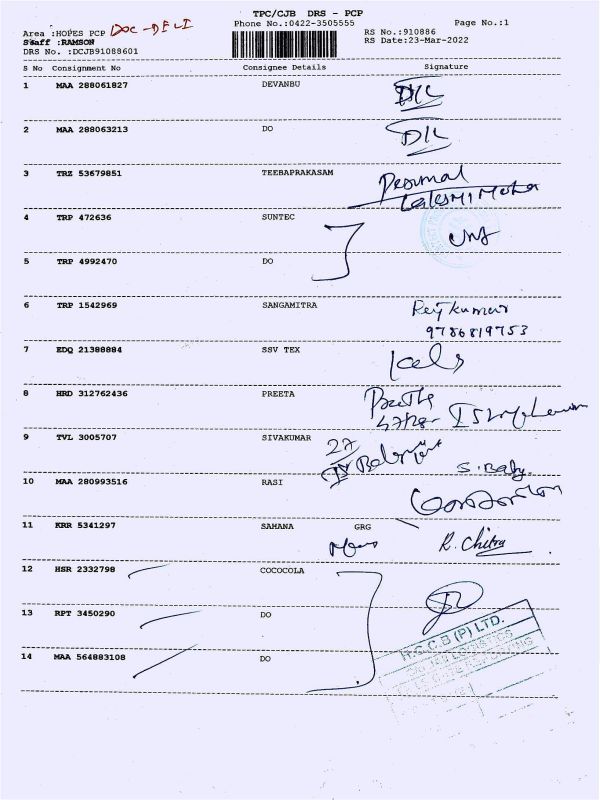 TPC/CJB DRS - PCP
Area :HOPES PCP DOC-DELI
Phone No.:0422-3505555
Page No.:1
Staff :RAMSON
RS No.:910886
DRS No. :DCJB91088601
RS Date:23-Mar-2022
S No Consignment No Consignee Details Signature
1 MAA 288061827 DEVANBU
2 MAA 288063213 DO
3 TRZ 53679851 TEEBAPRAKASAM Perumal
4 TRP 472636 SUNTEC
5 TRP 4992470 DO
6 TRP 1542969 SANGAMITRA Rejkumar
9786819753
7 EDQ 21388884 SSV TEX
8 HRD 312762436 PREETA
9 TVL 3005707 SIVAKUMAR 27
S. Baby
10 MAA 280993516 RASI
11 KRR 5341297 SAHANA GRG R. Chitra
12 HSR 2332798 COCOCOLA
13 RPT 3450290 DO
14 MAA 564883108 DO
H.C.C.B (P) LTD.